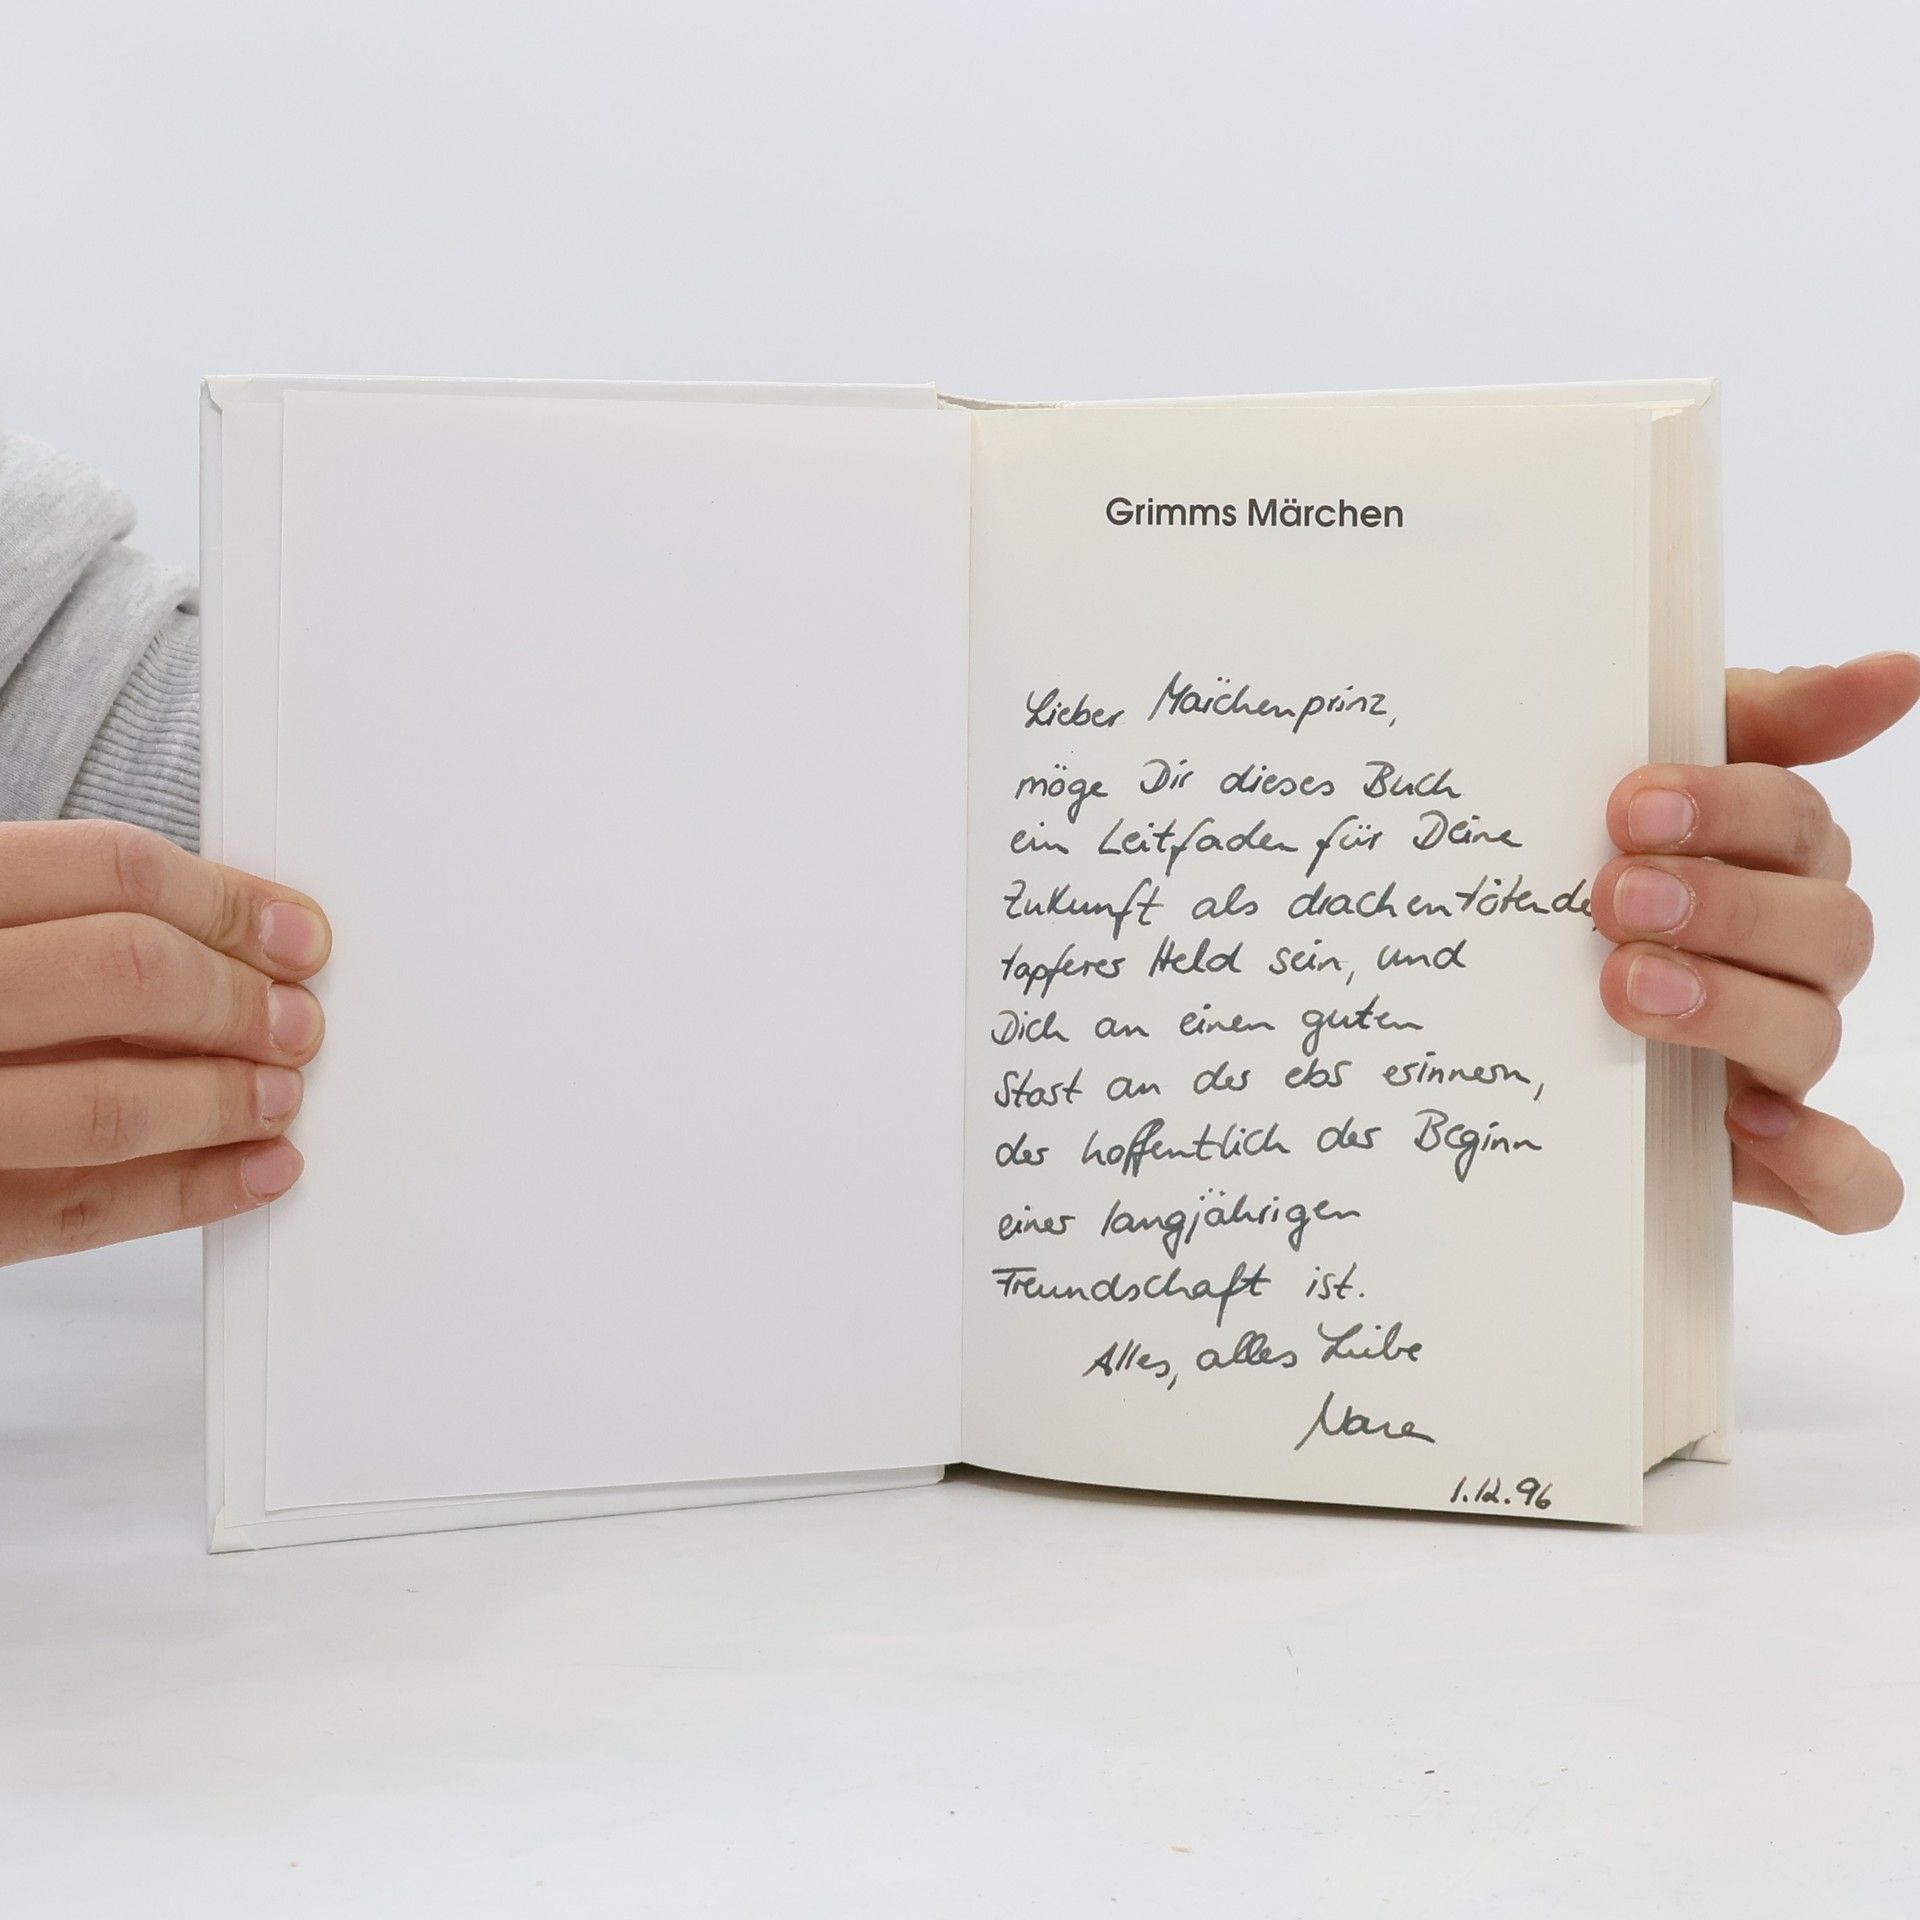 Grimms Märchen
Lieber Märchenprinz,
möge Dir dieses Buch
ein Leitfaden für Deine
Zukunft als drachentötende
tapferer Held sein, und
Dich an einen guten
Start an der ebs erinnern,
der hoffentlich der Beginn
einer langjährigen
Freundschaft ist.
Alles, alles Liebe
1.12.96